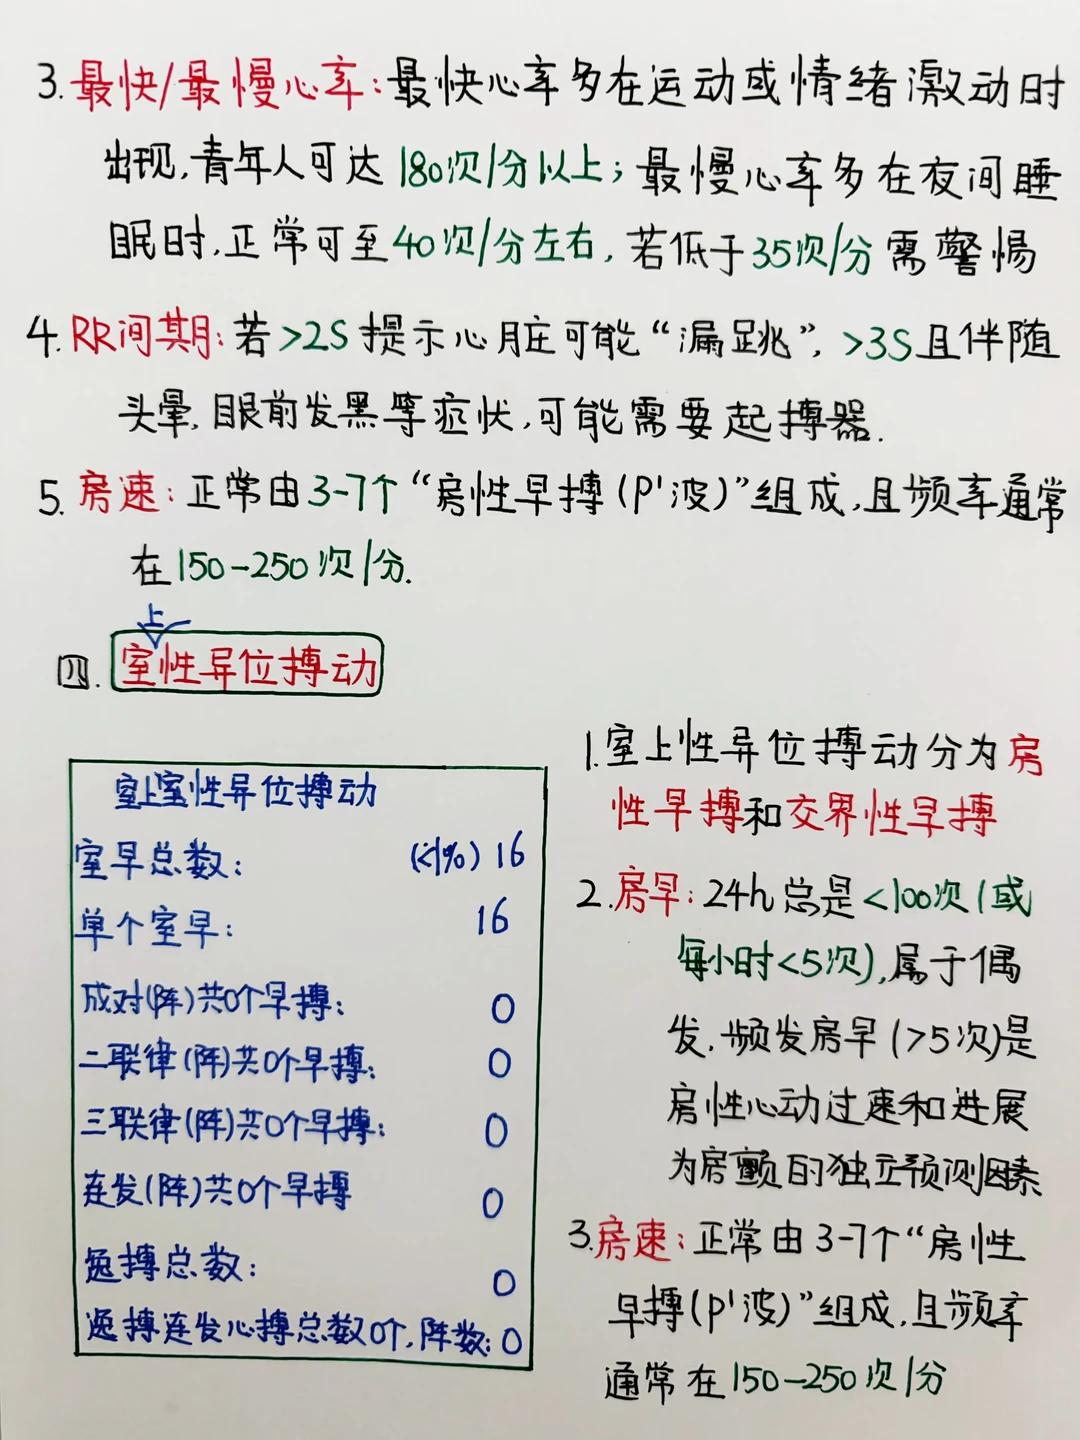 3.最快/最慢心率:最快心率多在运动或情绪激动时
出现,青年人可达180次/分以上;最慢心率多在夜间睡
眠时,正常可至40次/分左右,若低于35次/分需警惕
4.RR间期:若>2S提示心脏可能“漏跳”,>3S且伴随
头晕,眼前发黑等症状,可能需要起搏器.
5.房速:正常由3-7个“房性早搏(P'波)”组成,且频率通常
在150-250次/分.
上
四.室性异位搏动
室上室性异位搏动
室早总数:(<1%)16
单个室早:16
成对(阵)共0个早搏:0
二联律(阵)共0个早搏:0
三联律(阵)共0个早搏:0
连发(阵)共0个早搏 0
逸搏总数:0
逸搏连发心搏总数0个,阵数:0
1.室上性异位搏动分为房
性早搏和交界性早搏
2.房早:24h总是<100次(或
每小时<5次),属于偶
发.频发房早(>5次)是
房性心动过速和进展
为房颤的独立预测因素
3.房速:正常由3-7个“房性
早搏(P'波)”组成,且频率
通常在150-250次/分